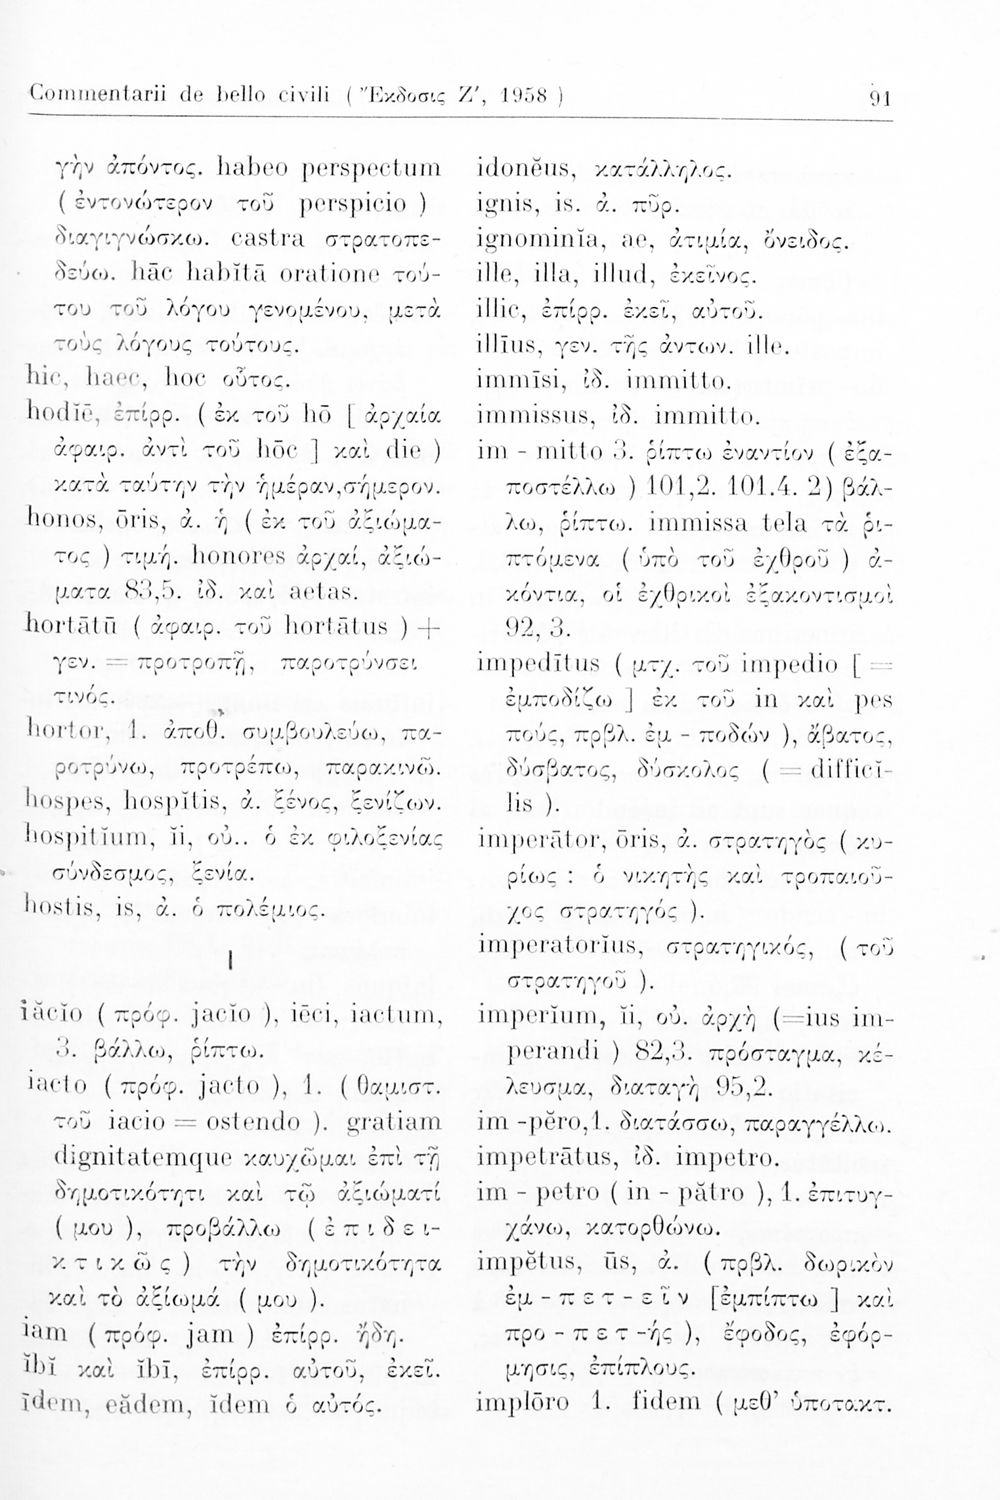 Commentarii de bello civili ( Ἔκδοσις Ζ′, 1958 ) 91
γὴν ἀπόντος. habeo perspectum
( ἐντονώτερον τοῦ perspicio )
διαγιγνώσκω. castra στρατοπε-
δεύω. hāc habĭtā oratione τού-
του τοῦ λόγου γενομένου, μετὰ
τοὺς λόγους τούτους.
hic, haec, hoc οὗτος.
hodĭē, ἐπίρρ. ( ἐκ τοῦ hō [ ἀρχαία
ἀφαιρ. ἀντὶ τοῦ hōc ] καὶ die )
κατὰ ταύτην τὴν ἡμέραν,σήμερον.
honos, ōris, ἀ. ἡ ( ἐκ τοῦ ἀξιώμα-
τος ) τιμή. honores ἀρχαί, ἀξιώ-
ματα 83,5. ἰδ. καὶ aetas.
hortātū ( ἀφαιρ. τοῦ hortātus ) +
γεν. = προτροπῇ, παροτρύνσει
τινός.
hortor, 1. ἀποθ. συμβουλεύω, πα-
ροτρύνω, προτρέπω, παρακινῶ.
hospes, hospĭtis, ἀ. ξένος, ξενίζων.
hospitĭum, ĭi, οὐ.. ὁ ἐκ φιλοξενίας
σύνδεσμος, ξενία.
hostis, is, ἀ. ὁ πολέμιος.
I
iăcĭo ( πρόφ. jacĭo ), iēci, iactum,
3. βάλλω, ῥίπτω.
iacto ( πρόφ. jacto ), 1. ( θαμιστ.
τοῦ iacio = ostendo ). gratiam
dignitatemque καυχῶμαι ἐπὶ τῇ
δημοτικότητι καὶ τῷ ἀξιώματί
( μου ), προβάλλω ( ἐ π ι δ ε ι-
κ τ ι κ ῶ ς ) τὴν δημοτικότητα
καὶ τὸ ἀξίωμά ( μου ).
iam ( πρόφ. jam ) ἐπίρρ. ἤδη.
ĭbĭ καὶ ĭbī, ἐπίρρ. αὐτοῦ, ἐκεῖ.
īdem, eădem, ĭdem ὁ αὐτός.
idonĕus, κατάλληλος.
ignis, is. ἀ. πῦρ.
ignominĭa, ae, ἀτιμία, ὄνειδος.
ille, illa, illud, ἐκεῖνος.
illic, ἐπίρρ. ἐκεῖ, αὐτοῦ.
illīus, γεν. τῆς ἀντων. ille.
immīsi, ἰδ. immitto.
immissus, ἰδ. immitto.
im - mitto 3. ῥίπτω ἐναντίον ( ἐξα-
ποστέλλω ) 101,2. 101.4. 2) βάλ-
λω, ῥίπτω. immissa tela τὰ ῥι-
πτόμενα ( ὑπὸ τοῦ ἐχθροῦ ) ἀ-
κόντια, οἱ ἐχθρικοὶ ἐξακοντισμοὶ
92, 3.
impedītus ( μτχ. τοῦ impedio [ =
ἐμποδίζω ] ἐκ τοῦ in καὶ pes
πούς, πρβλ. ἐμ - ποδών ), ἄβατος,
δύσβατος, δύσκολος ( = difficĭ-
lis ).
imperātor, ōris, ἀ. στρατηγὸς ( κυ-
ρίως : ὁ νικητὴς καὶ τροπαιοῦ-
χος στρατηγός ).
imperatorĭus, στρατηγικός, ( τοῦ
στρατηγοῦ ).
imperĭum, ĭi, οὐ. ἀρχὴ (=ius im-
perandi ) 82,3. πρόσταγμα, κέ-
λευσμα, διαταγὴ 95,2.
im -pĕro,1. διατάσσω, παραγγέλλω.
impetrātus, ἰδ. impetro.
im - petro ( in - pătro ), 1. ἐπιτυγ-
χάνω, κατορθώνω.
impĕtus, ūs, ἀ. ( πρβλ. δωρικὸν
ἐμ - π ε τ - ε ῖ ν [ἐμπίπτω ] καὶ
προ - π ε τ -ής ), ἔφοδος, ἐφόρ-
μησις, ἐπίπλους.
implōro 1. fidem ( μεθ’ ὑποτακτ.